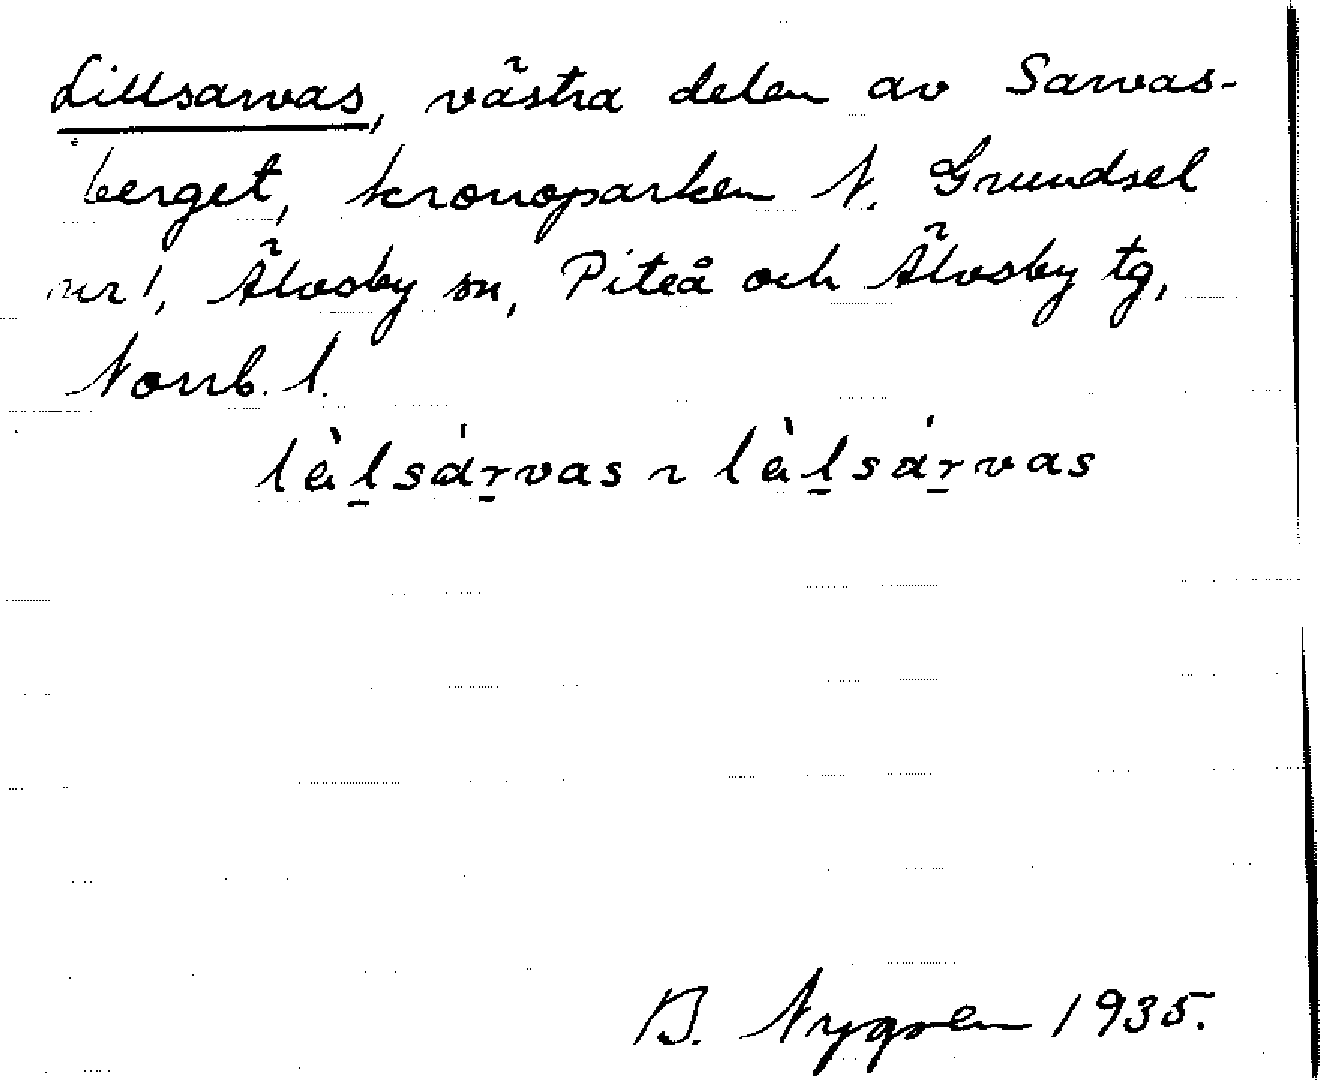 Lillsarvas, västra delen av Sarvas-
berget, kronoparken N. Grundsel
nr 1, Älvsby sn, Piteå och Älvsby tg,
Norrb. l.
lèl̠sár̠vas ~ lèl̠sár̠vas
B. Nygren 1935.